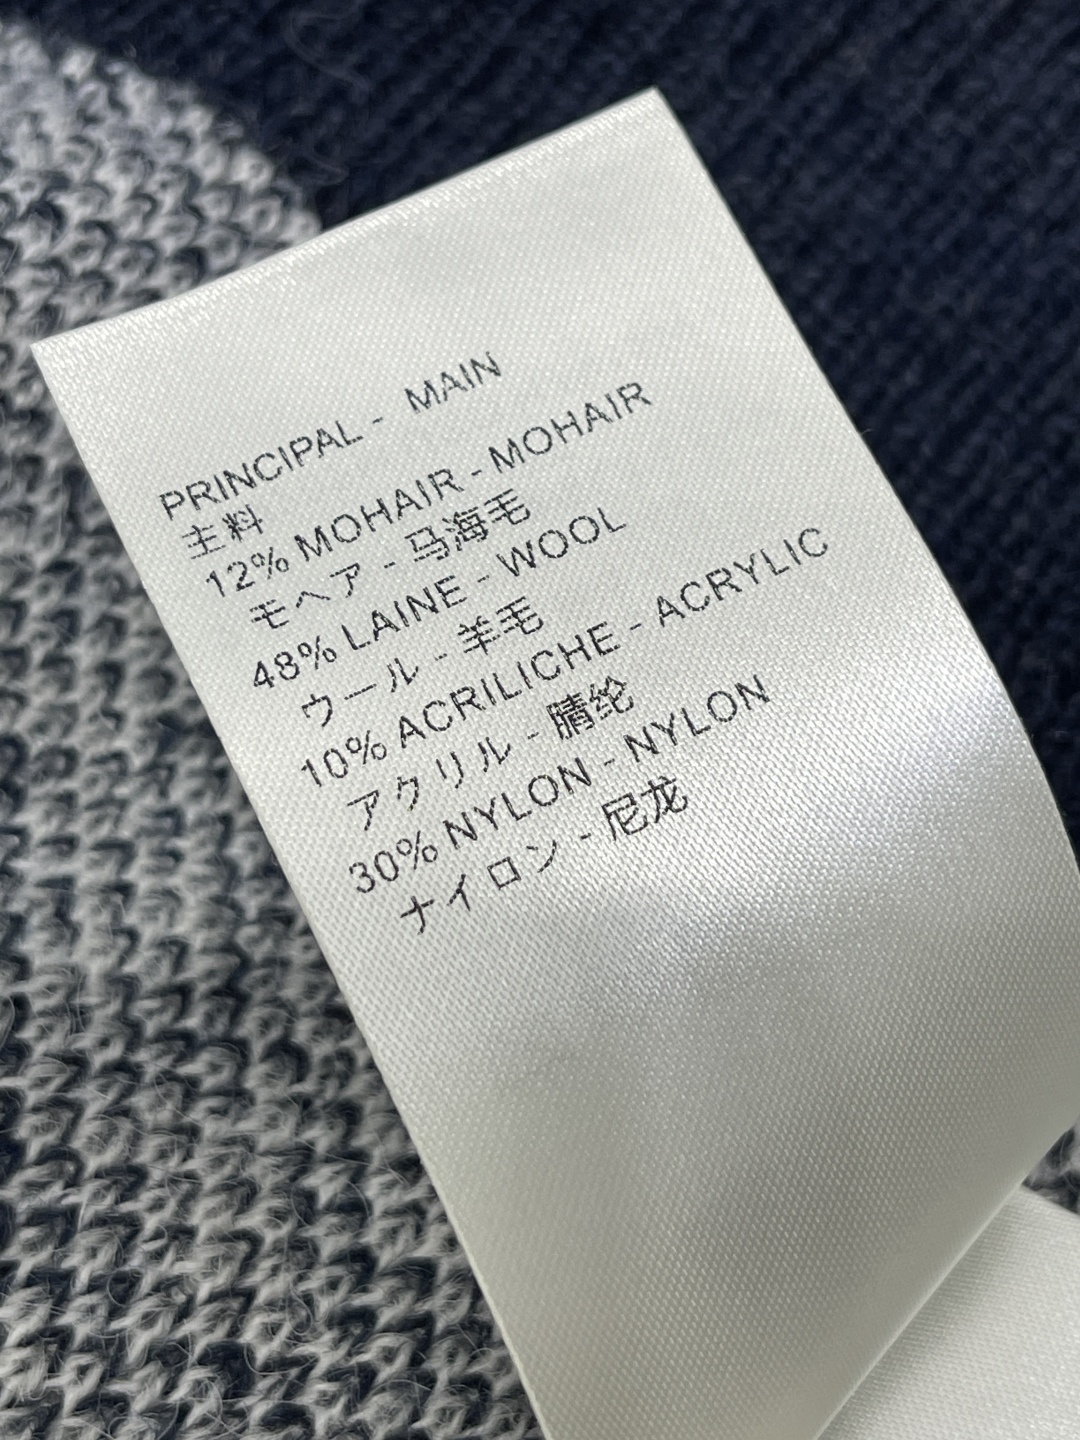 PRINCIPAL - MAIN
主料
12% MOHAIR - MOHAIR
モヘア - 马海毛
48% LAINE - WOOL
ウール - 羊毛
10% ACRILICHE - ACRYLIC
アクリル - 腈纶
30% NYLON - NYLON
ナイロン - 尼龙